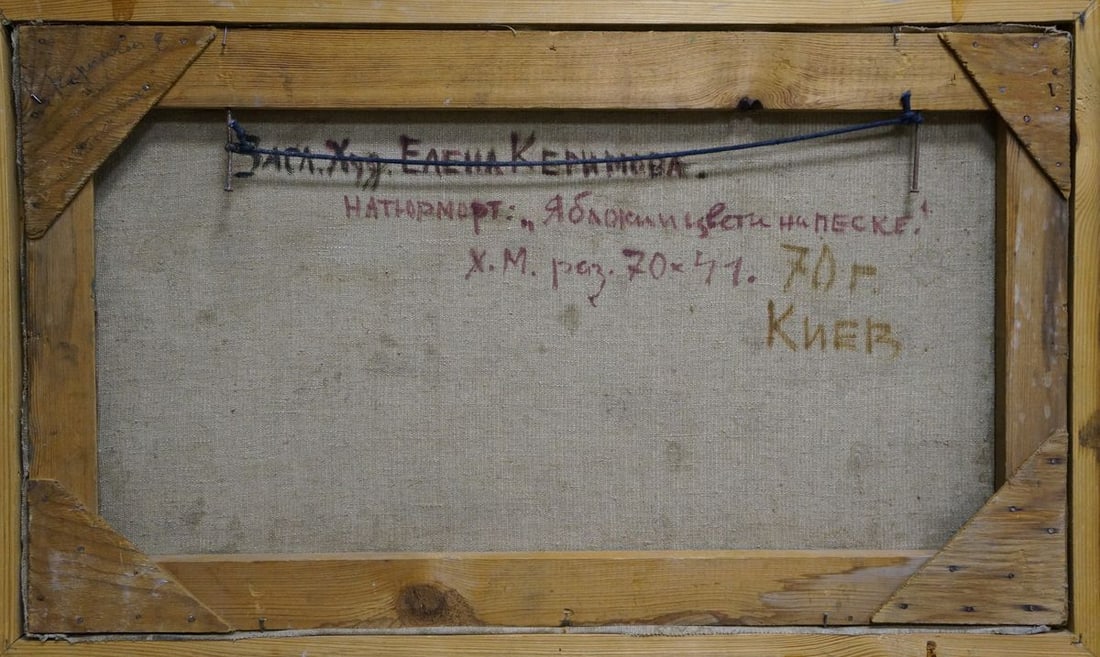 Засл. Худ. ЕЛЕНА КЕРИМОВА.
НАТЮРМОРТ: „Яблоки и цветы на ПЕСКЕ."
Х.М. раз. 70×41. 70 г.
КИЕВ